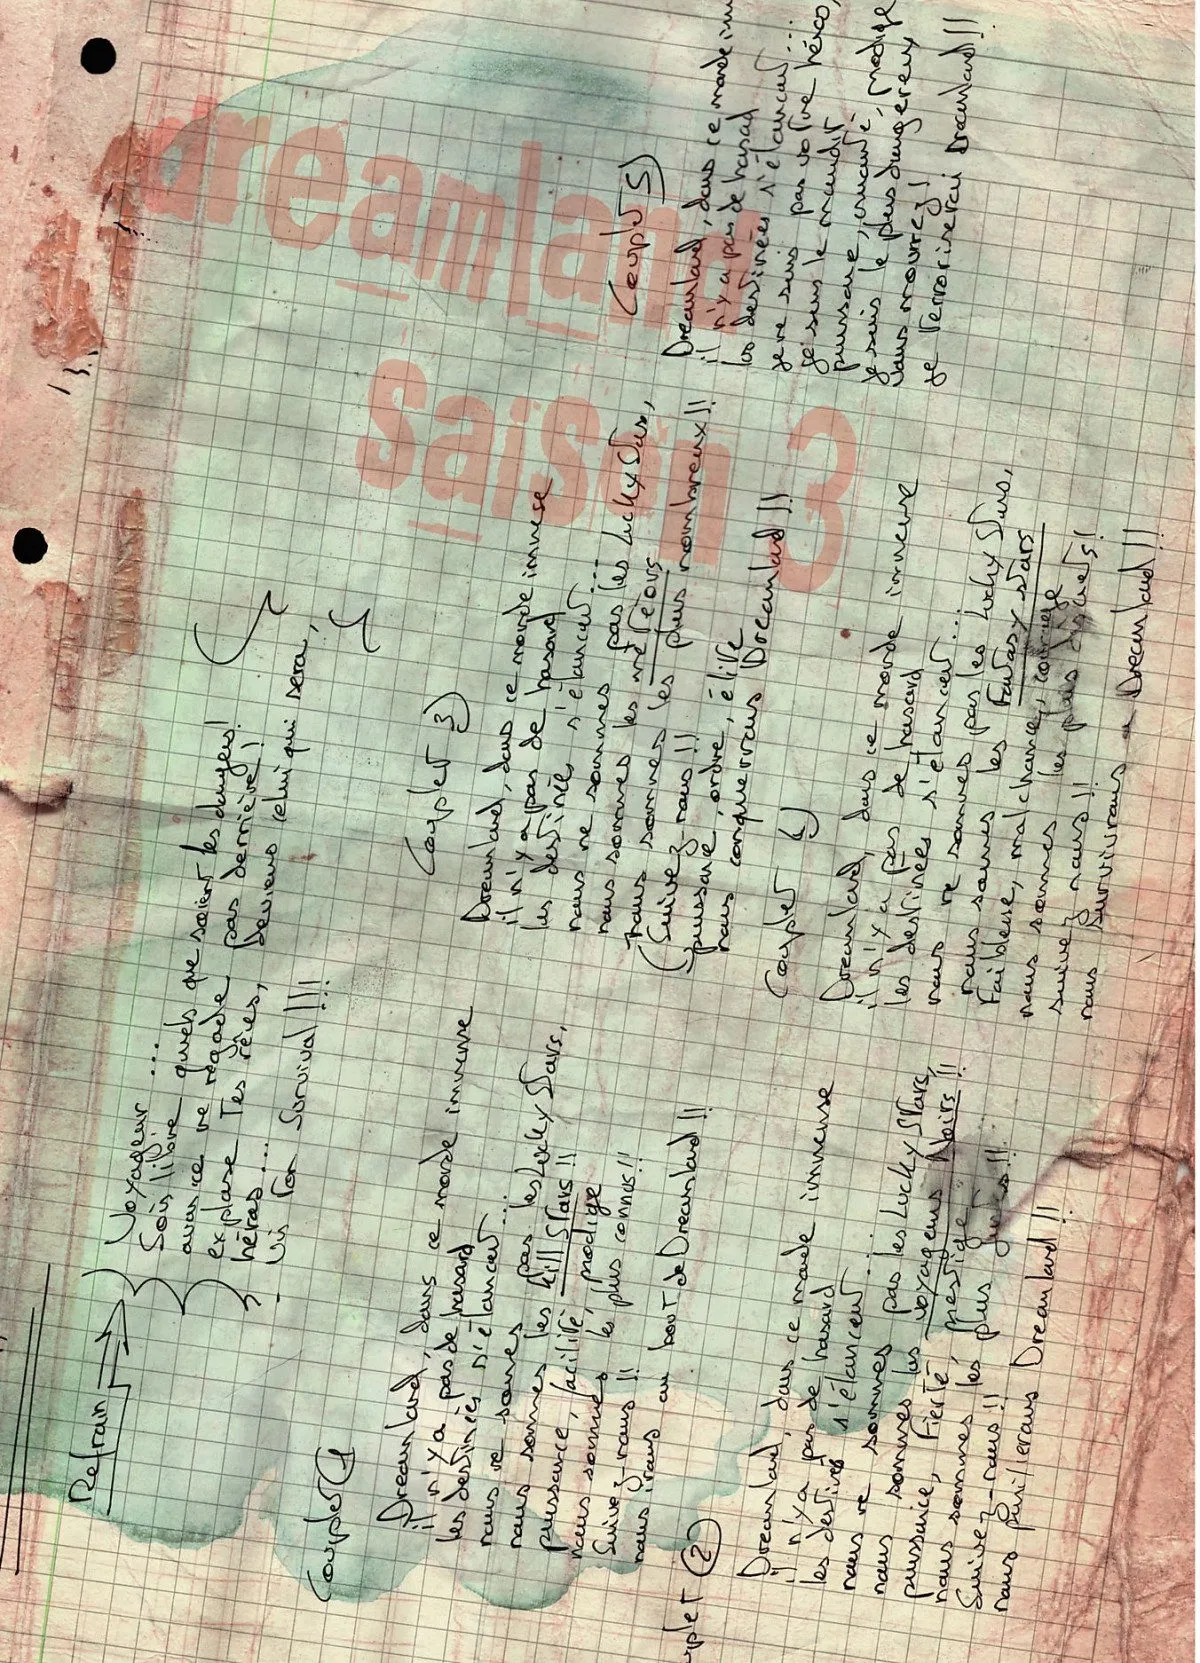 dreamland
saison 3
Refrain
Voyageur ....
Sois libre
avance quels que soient les dangers!
ne regarde pas derrière!
explore Tes rêves, deviens celui qui sera,
héros....
- Vis for Survival!!!
Couplet 1
Dreamland, dans ce monde immense
il n'y a pas de hasard
les destinées s'élancent...
nous ne sommes pas les Lucky Stars,
nous sommes les Kill Stars!!
puissance, facilité, prodige
nous sommes les plus connus!!
Suivez-nous!!
nous irons au bout de Dreamland!!
Couplet 2
Dreamland, dans ce monde immense
il n'y a pas de hasard
les destinées s'élancent....
nous ne sommes pas les Lucky Stars,
nous sommes les voyageurs Noirs!!
puissance, Fierté, prestige
nous sommes les plus
Suivez-nous!!
nous Dreamland!!
Couplet 3)
Dreamland, dans ce monde immense
il n'y a pas de hasard
les destinées s'élancent...
nous ne sommes pas les Lucky Stars,
nous sommes les météors
nous sommes les plus nombreux!!
(Suivez-nous!!
puissance, ordre, élite
nous conquerrons Dreamland!!
Couplet 4)
Dreamland, dans ce monde immense
il n'y a pas de hasard
les destinées s'élancent...
nous ne sommes pas les Lucky Stars,
nous sommes les Fantasy Stars
Faiblesse, malchance, courage
nous sommes les plus
suivez nous!!
nous survivrons a Dreamland!!
Couplet 5)
Dreamland, dans ce monde
il n'y a pas de hasard
les destinées s'élancent...
je ne suis pas votre héros,
je suis le maudit
puissance, cruauté, prodige
je suis le plus dangereux
Vous mourrez!
je terroriserai Dreamland!!